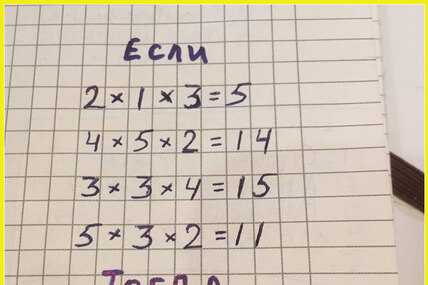 Если
2 × 1 × 3 = 5
4 × 5 × 2 = 14
3 × 3 × 4 = 15
5 × 3 × 2 = 11